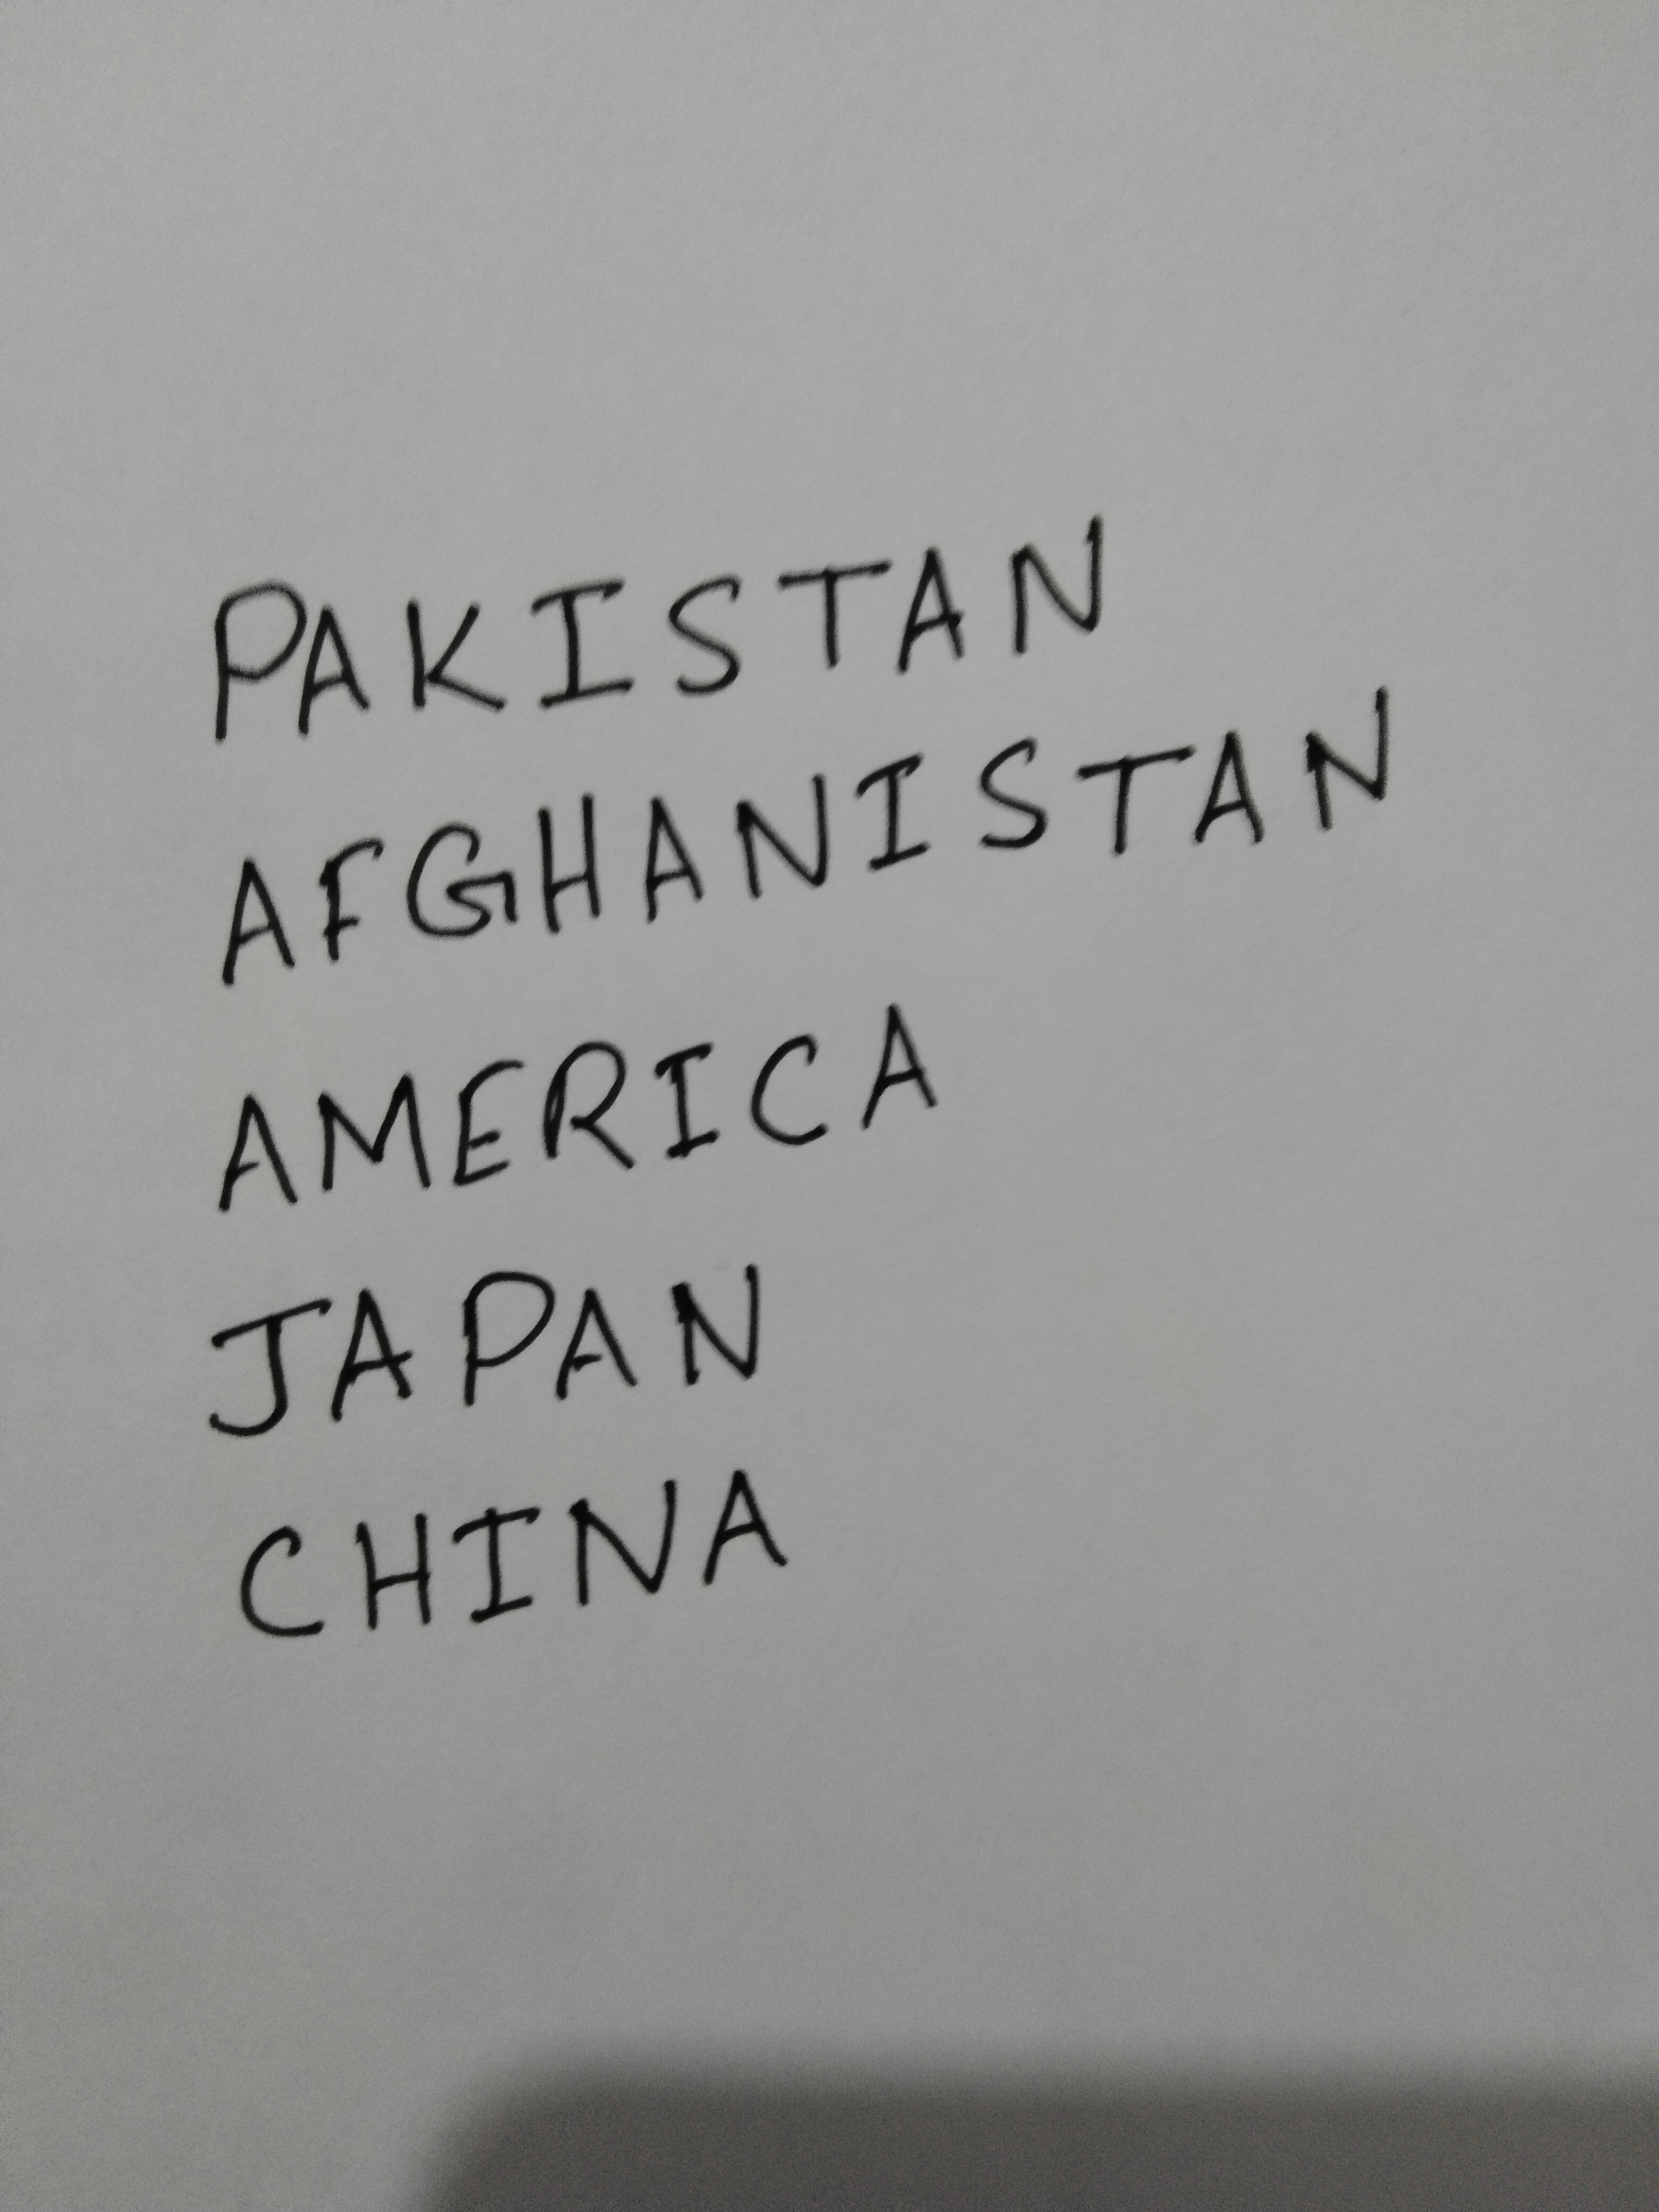 PAKISTAN
AFGHANISTAN
AMERICA
JAPAN
CHINA